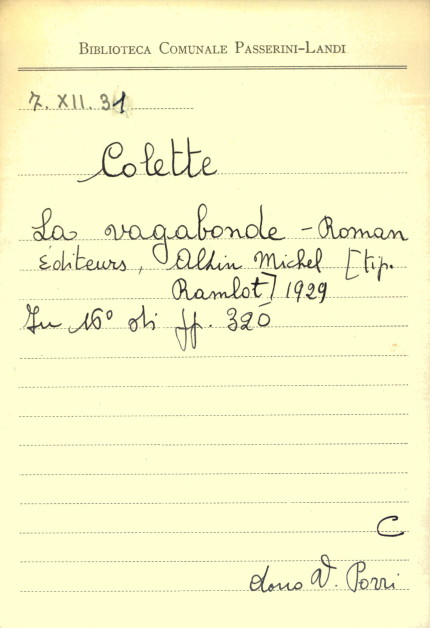 BIBLIOTECA COMUNALE PASSERINI-LANDI
7. XII. 31
Colette
La vagabonde - Roman
éditeurs, Albin Michel [tip.
Ramlot] 1929
In 16° di pp. 320
C
dono V. Porri